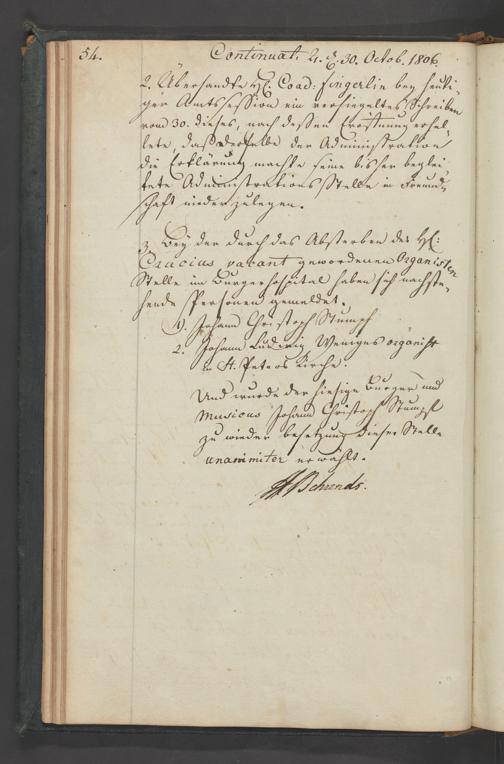 54.
Continuat. 4. d. 30. Octob. 1806.
2. Übersandte H. Coad: Fingerlin bey heuti-
ger Amtssession ein versiegeltes Schreiben
vom 30. dieses, nach dessen Eröffnung erhel-
lete, daß derselbe der Administration
die Erklärung machte seine bisher beglei-
tete Administrations Stelle in Freund-
schaft niederzulegen.
3. Bey der durch das Absterben des H:
Crucius vacant gewordenen Organisten
Stelle im Burgerhospital haben sich nachste-
hende Personen gemeldet.
1). Johann Christoph Stumpf
2. Johann Ludwig Weniges organist
in St. Peters Kirche.
Und wurde der hiesige Burger und
Musicus Johann Christoph Stumpf
zu wieder besetzung dieser Stelle
unanimiter erwählt.
Behrends.